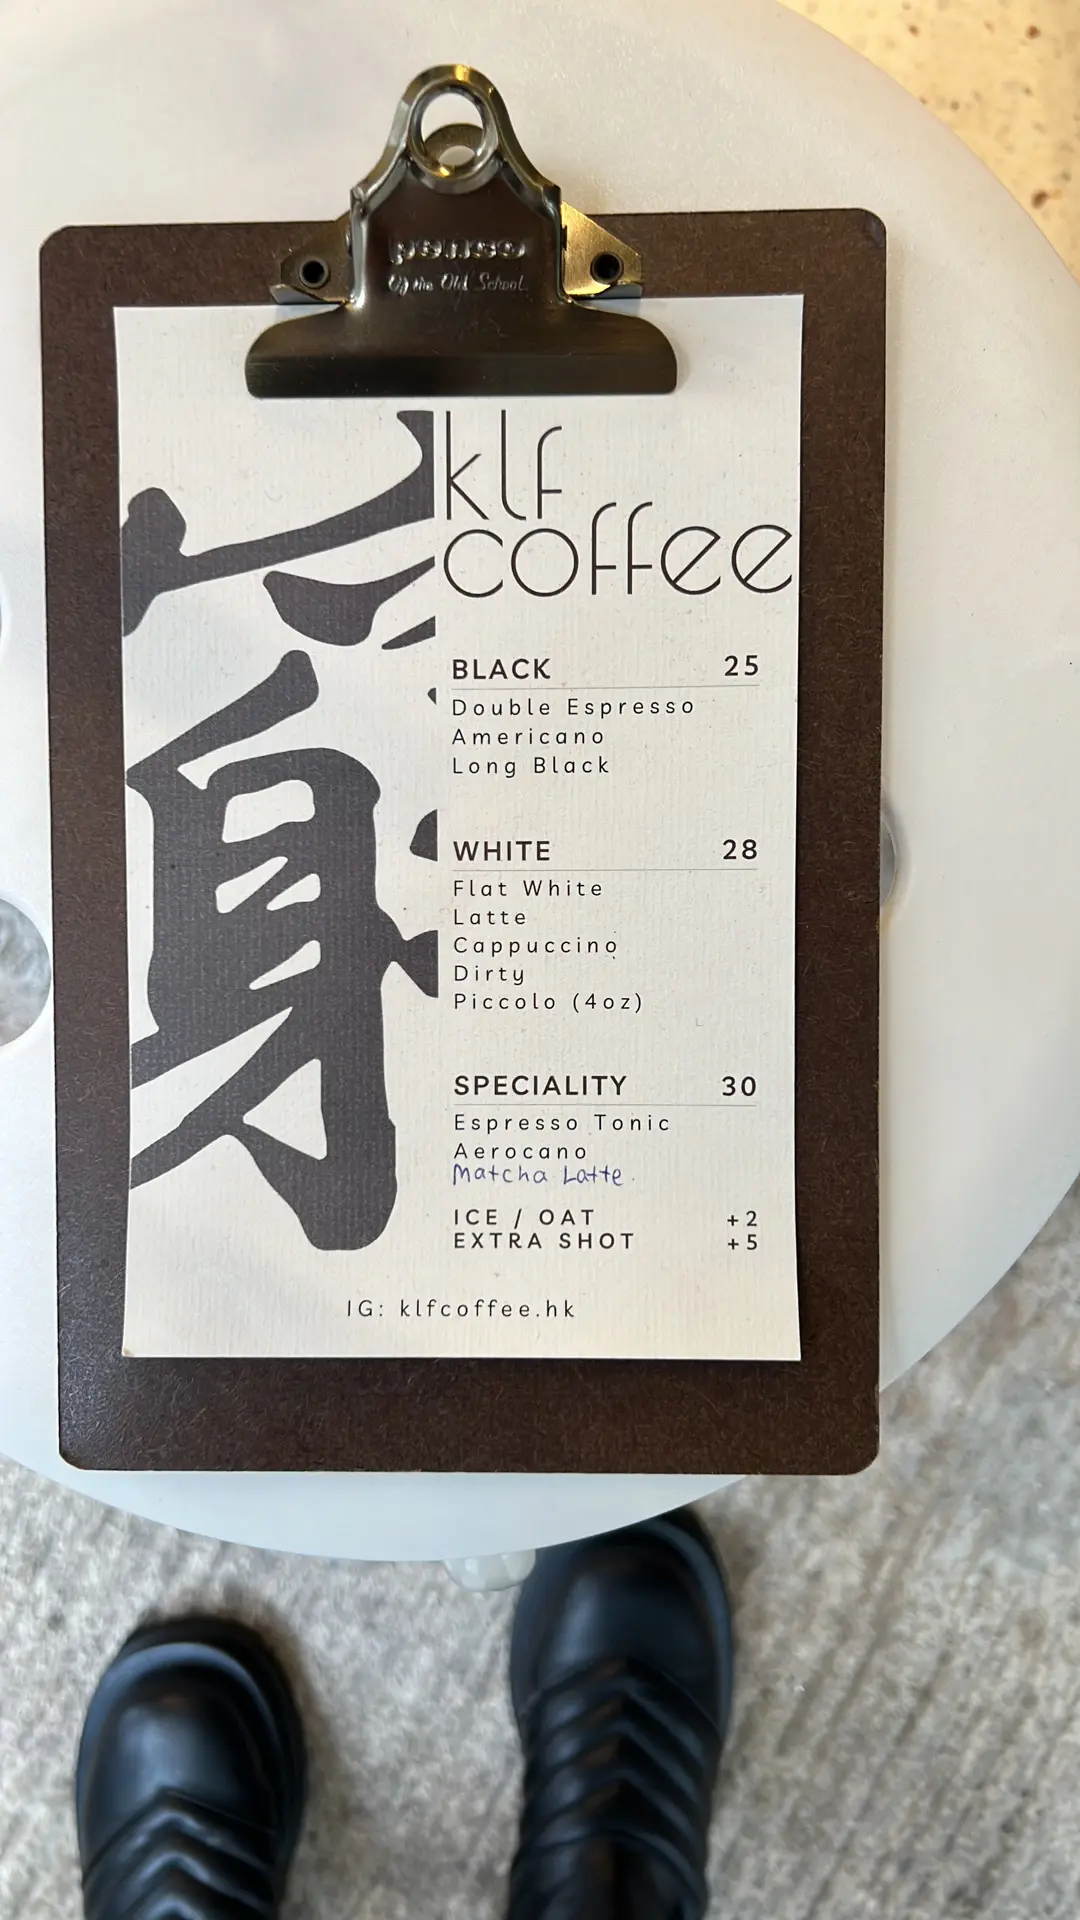 penco
Of the Old School
klf
coffee
BLACK 25
Double Espresso
Americano
Long Black
WHITE 28
Flat White
Latte
Cappuccino
Dirty
Piccolo (4oz)
SPECIALITY 30
Espresso Tonic
Aerocano
Matcha Latte
ICE / OAT +2
EXTRA SHOT +5
IG: klfcoffee.hk